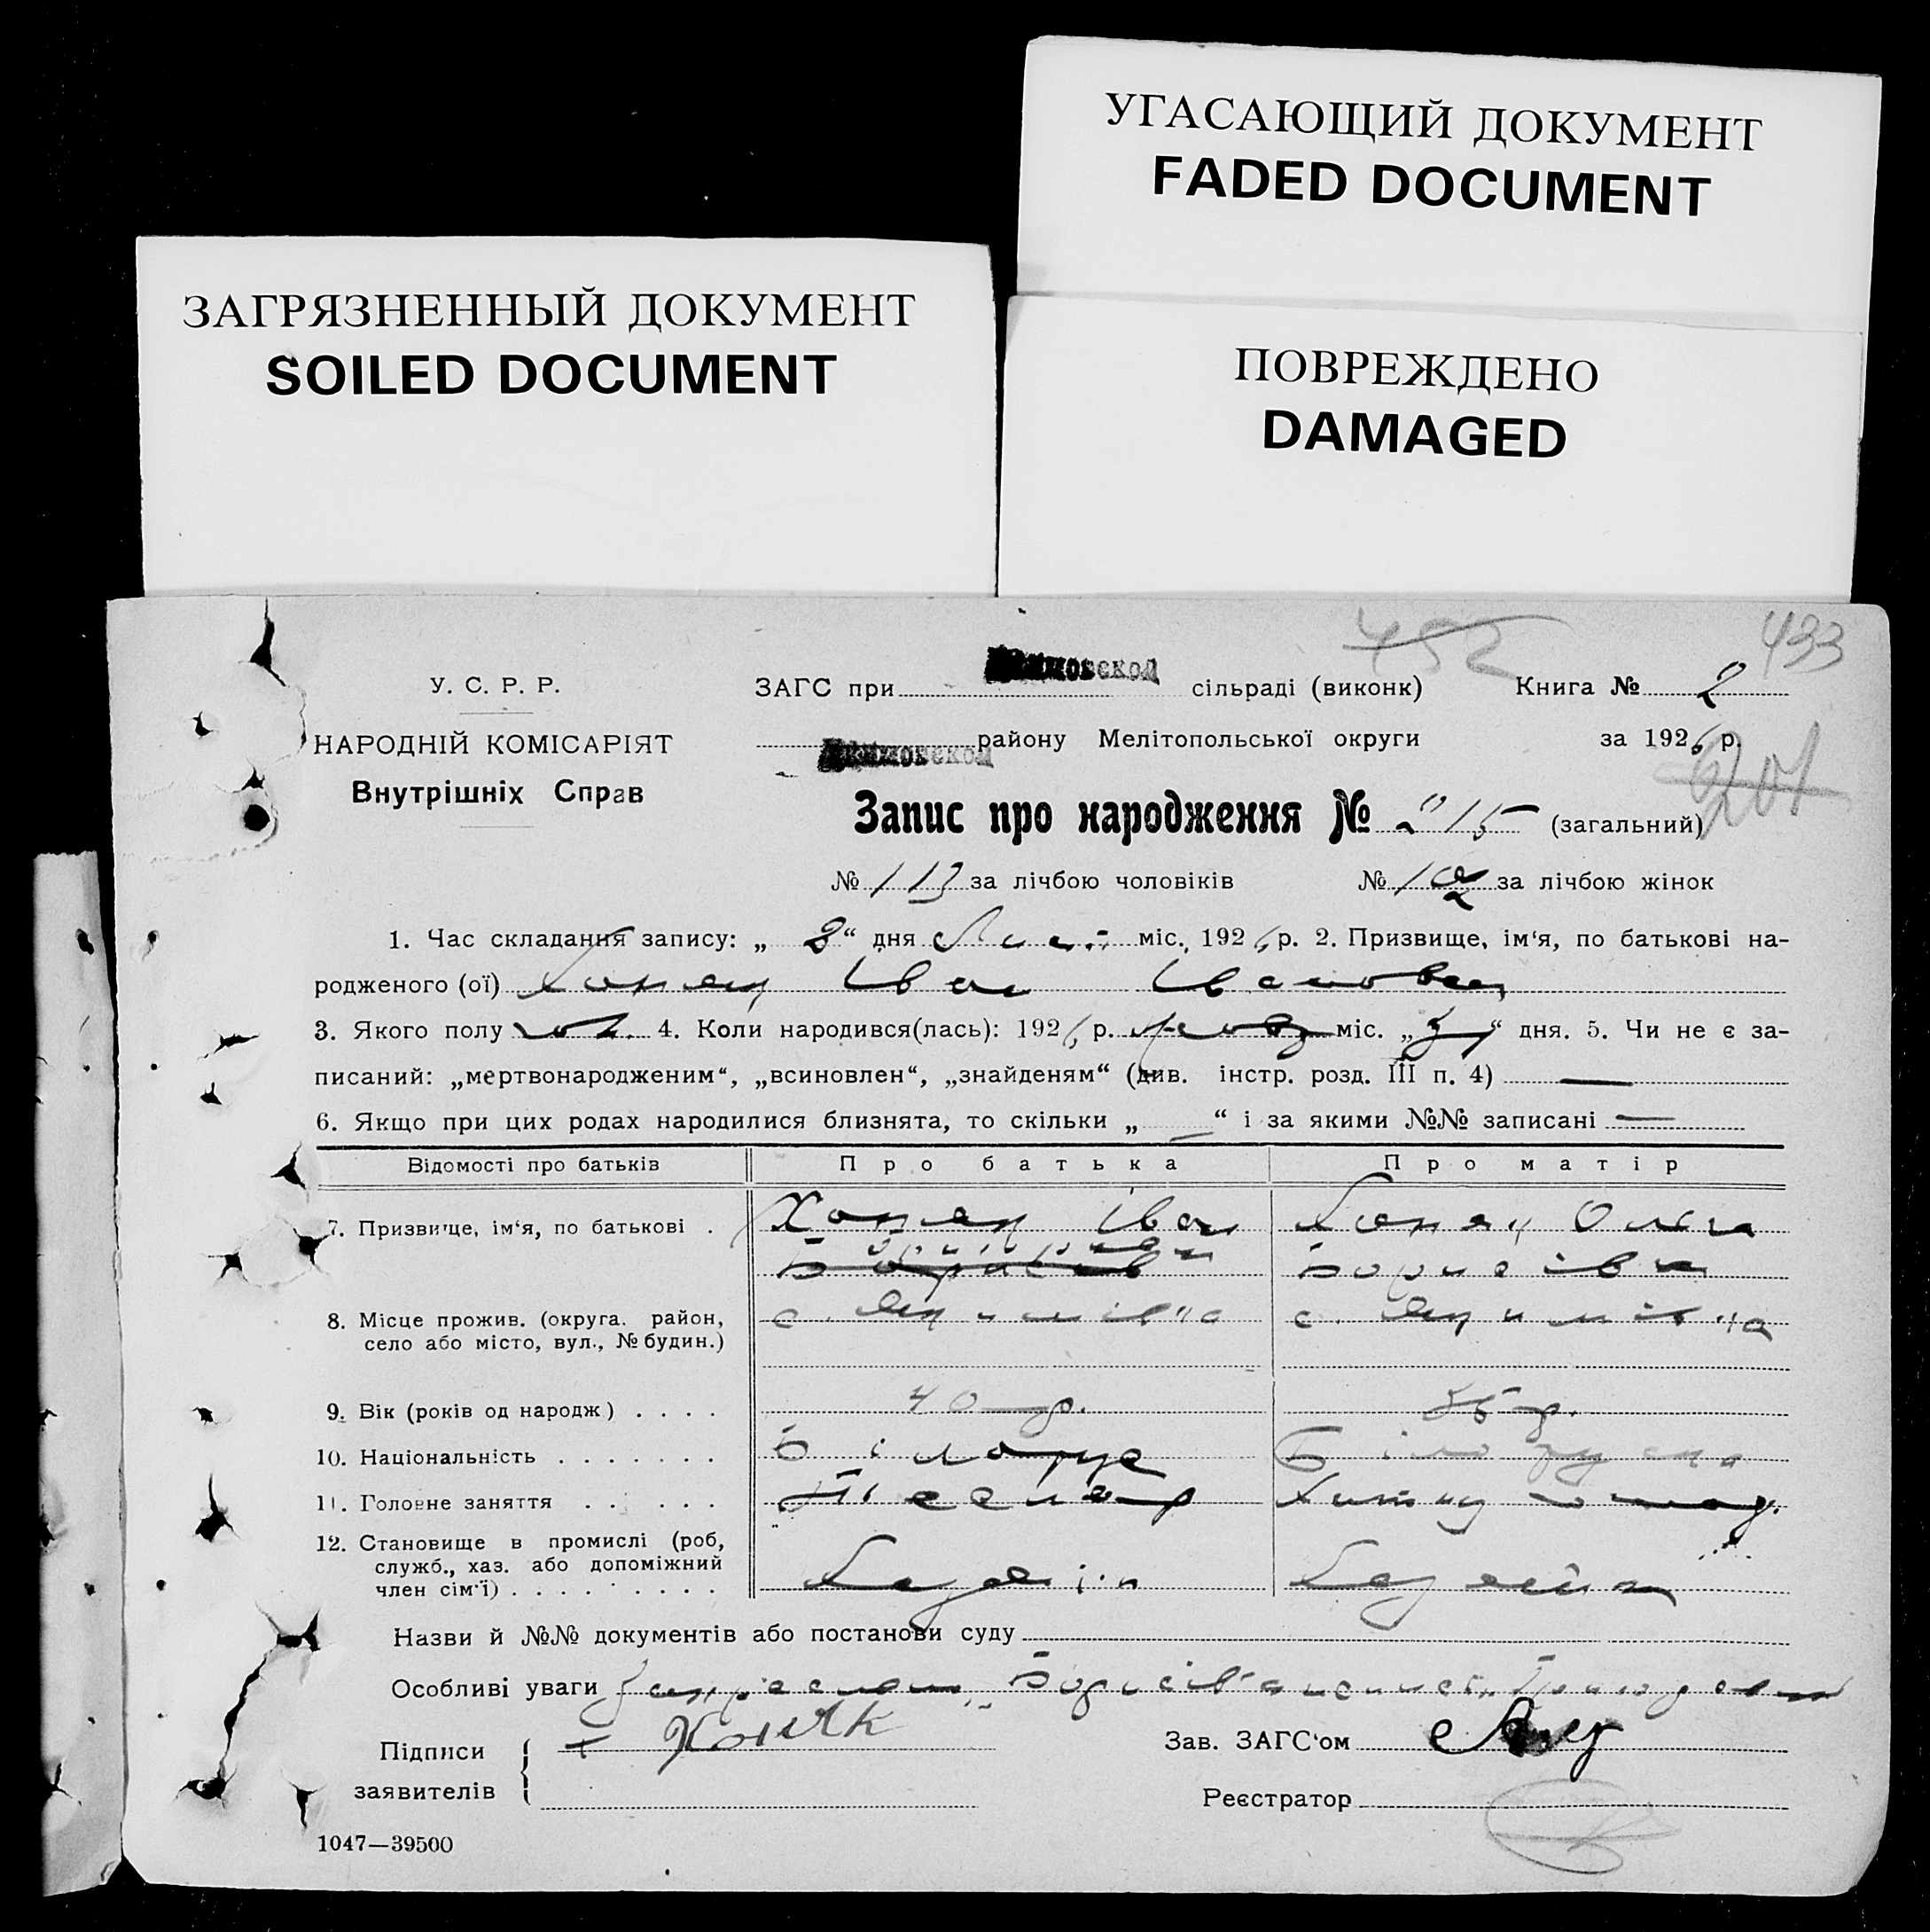 УГАСАЮЩИЙ ДОКУМЕНТ
FADED DOCUMENT
ЗАГРЯЗНЕННЫЙ ДОКУМЕНТ
SOILED DOCUMENT
ПОВРЕЖДЕНО
DAMAGED
452 433
У. С. Р. Р.
ЗАГС при сільраді (виконк) Книга № 2
НАРОДНІЙ КОМІСАРІЯТ
району Мелітопольської округи за 1926 р.
Внутрішніх Справ
201
Запис про народження № 215 (загальний)
№ 113 за лічбою чоловіків № 102 за лічбою жінок
1. Час складання запису: „ 8“ дня міс., 1926 р. 2. Призвище, ім‘я, по батькові на-
родженого (ої) Хоняк Іван Іванович
3. Якого полу чол. 4. Коли народився(лась): 1926 р. міс. „ “ дня. 5. Чи не є за-
писаний: „мертвонародженим“, „всиновлен“, „знайденям“ (див. інстр. розд. III п. 4) —
6. Якщо при цих родах народилися близнята, то скільки „ — “ і за якими №№ записані —
Відомості про батьків Про батька Про матір
7. Призвище, ім‘я, по батькові . Хоняк Іван Хоняк Ольга
Борисів Борисівна
8. Місце прожив. (округа. район, с. Якимівка с. Якимівка
село або місто, вул., № будин.)
9. Вік (років од народж) . . . . 40 р. р.
10. Національність . . . . . . . Білорус Білоруска
11. Головне заняття . . . . . . Тесляр
12. Становище в промислі (роб,
служб., хаз. або допоміжний
член сім‘ї) . . . . . . . . . Хазяїн Хазяйка
Назви й №№ документів або постанови суду
Особливі уваги
Підписи Хоняк Зав. ЗАГС‘ом
заявителів Реєстратор
1047—39500